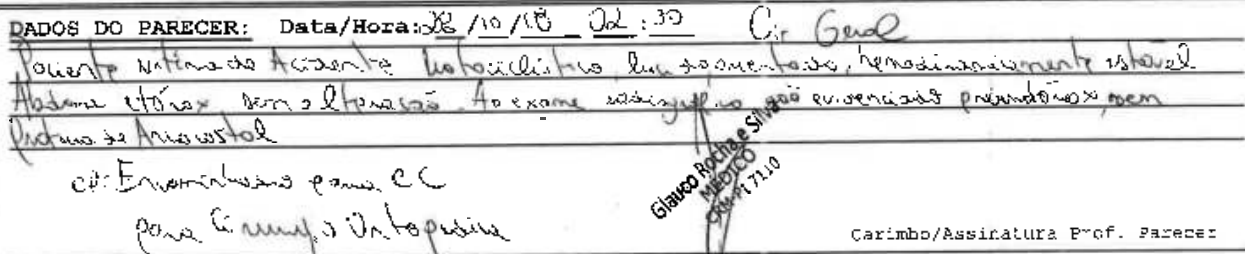 DADOS DO PARECER: Data/Hora: 28/10/18 02:30 Cir Geral
Paciente vítima de Acidente motociclístico, hemodinamicamente estável
Abdome e tórax sem alteração. Ao exame não evidenciado pneumotórax nem
cd: Encaminhado para CC
para Cirurgia Ortopédica
Glauco Rocha e Silva
MÉDICO
CRM-PI 7110
Carimbo/Assinatura Prof. Parecer